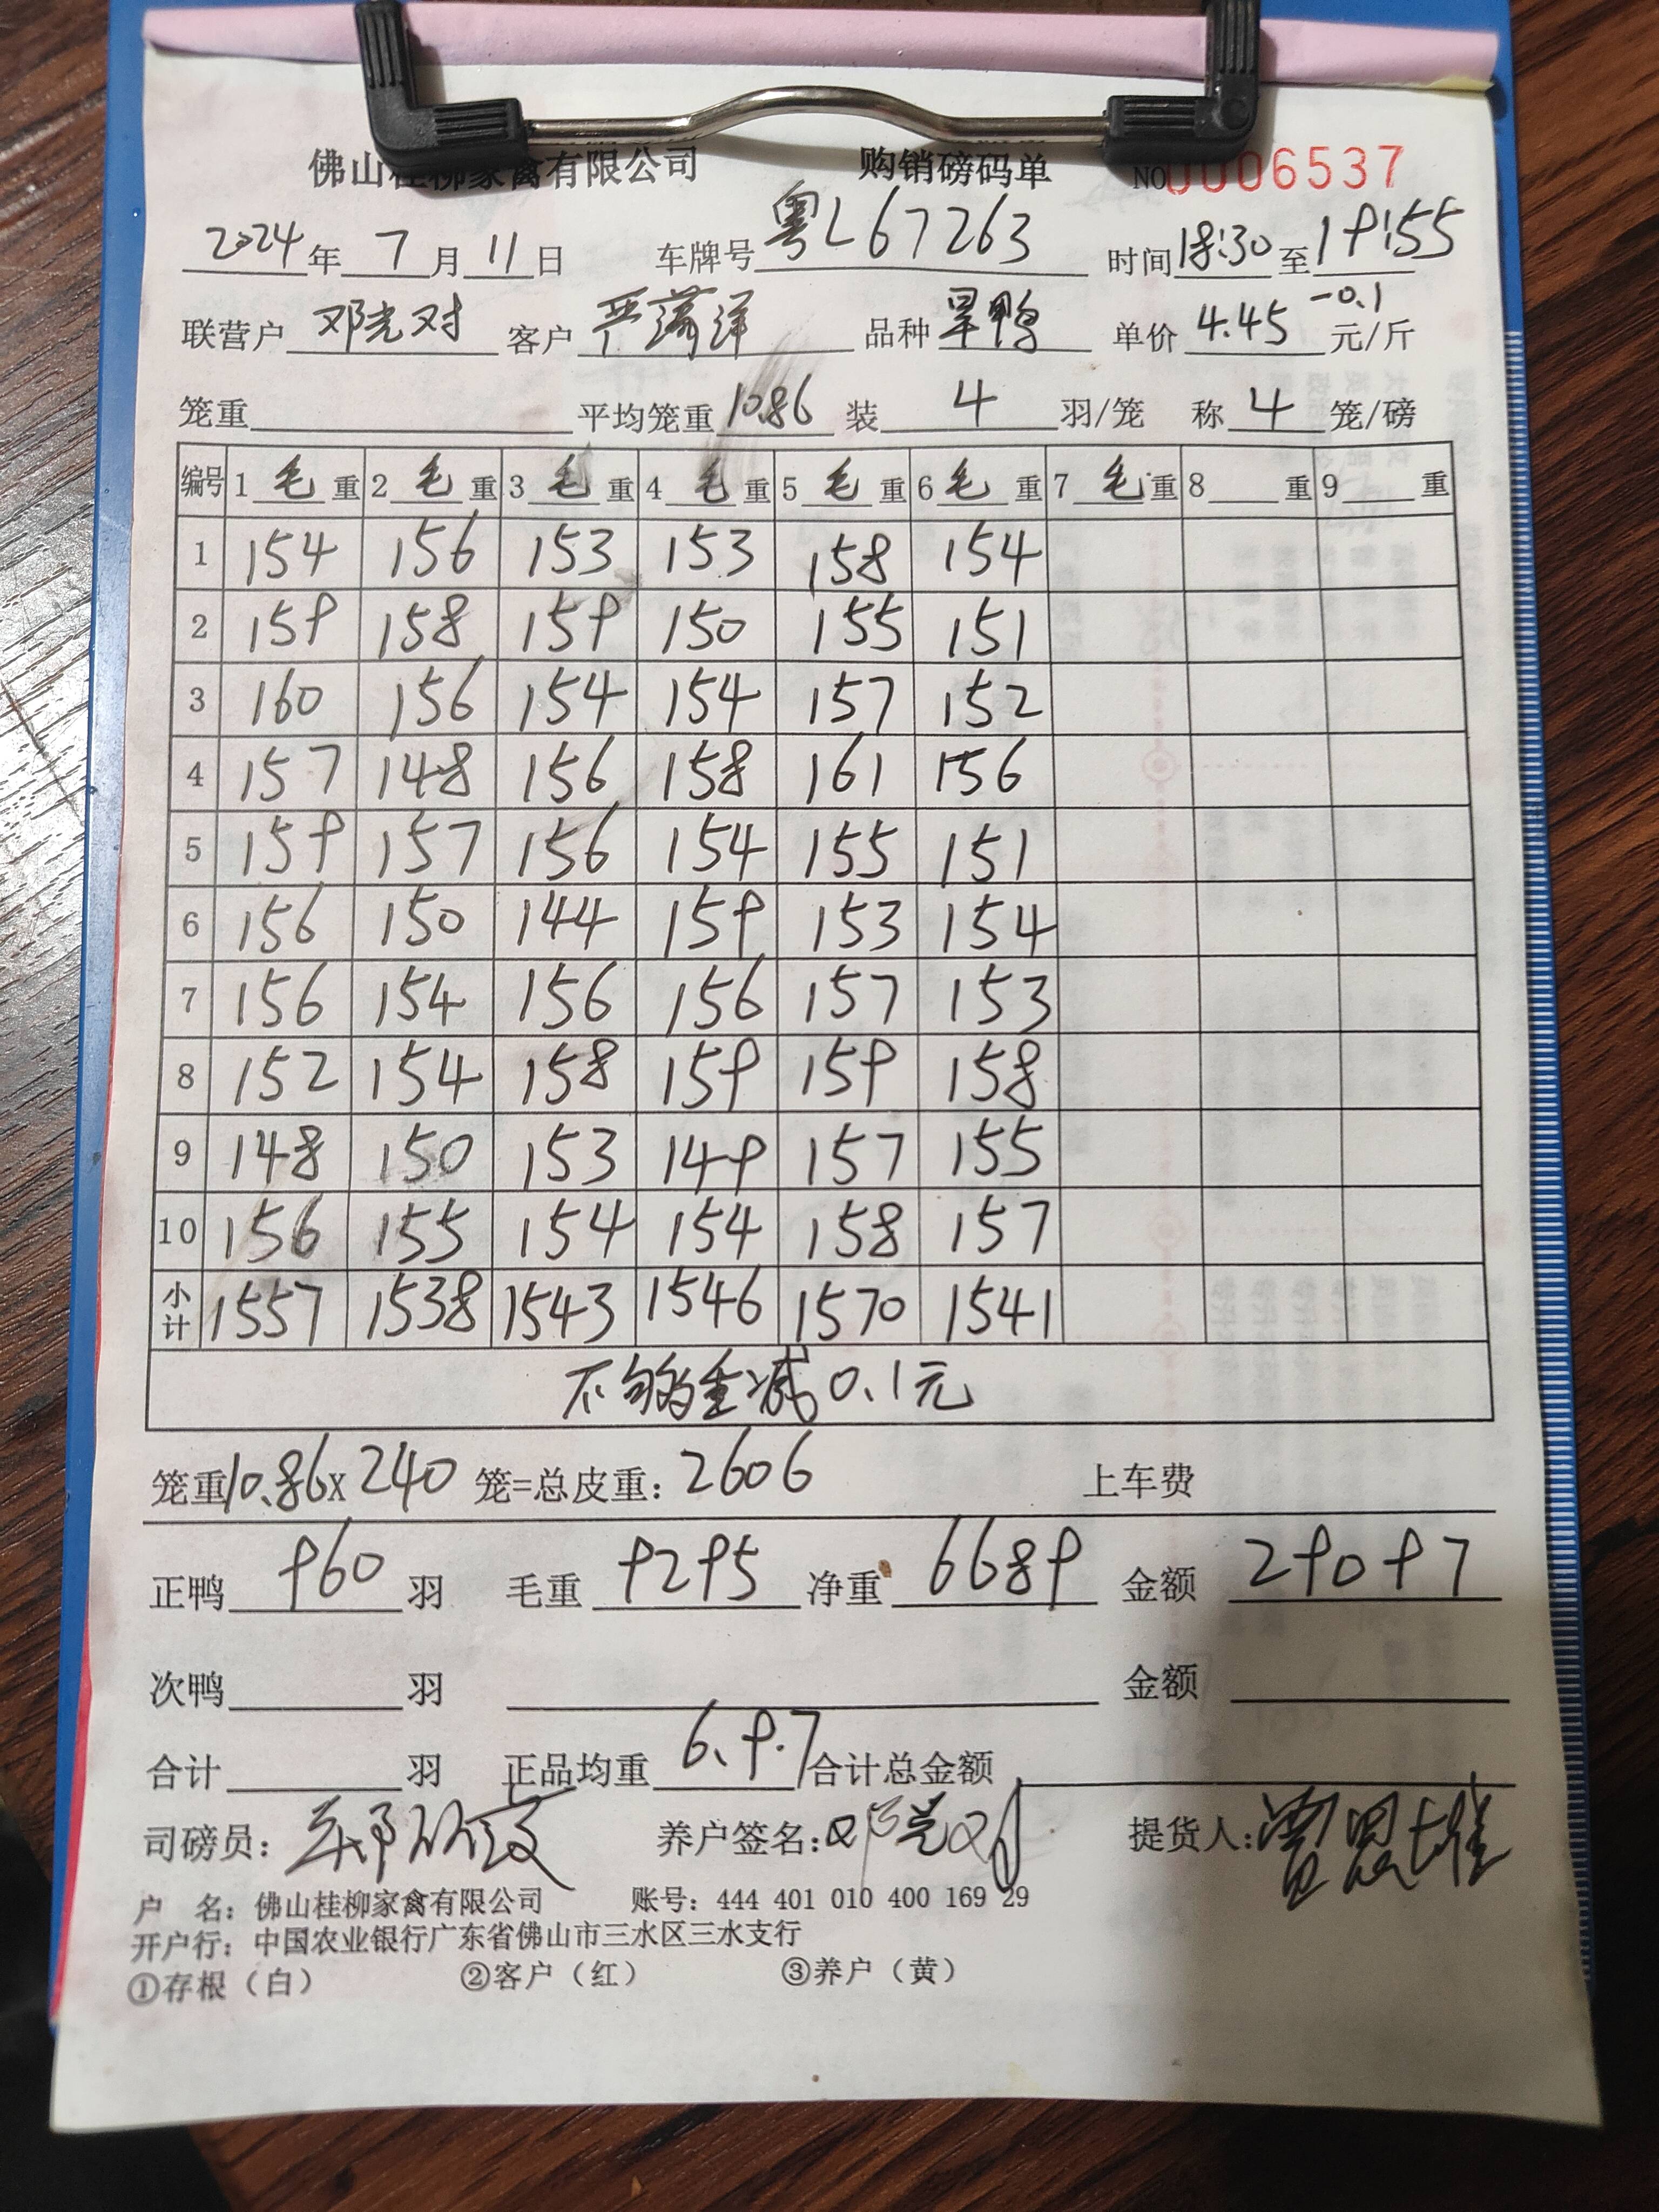 佛山桂柳家禽有限公司 购销磅码单 NO0006537
2024年7月11日 车牌号粤L67263 时间18:30至19:55
联营户邓光对 客户严 品种旱鸭 单价4.45-0.1元/斤
笼重 平均笼重10.86 装4羽/笼 称4笼/磅
编号 1毛重 2毛重 3毛重 4毛重 5毛重 6毛重 7毛重 8重 9重
1 154 156 153 153 158 154
2 159 158 159 150 155 151
3 160 156 154 154 157 152
4 157 148 156 158 161 156
5 159 157 156 154 155 151
6 156 150 144 159 153 154
7 156 154 156 156 157 153
8 152 154 158 159 159 158
9 148 150 153 149 157 155
10 156 155 154 154 158 157
小计 1557 1538 1543 1546 1570 1541
不够重减0.1元
笼重10.86x240笼=总皮重:2606 上车费
正鸭960羽 毛重9295 净重6689 金额29097
次鸭 羽 金额
合计 羽 正品均重6.97 合计总金额
司磅员: 养户签名:邓光对 提货人:
户 名: 佛山桂柳家禽有限公司 账号: 444 401 010 400 169 29
开户行: 中国农业银行广东省佛山市三水区三水支行
①存根(白) ②客户(红) ③养户(黄)